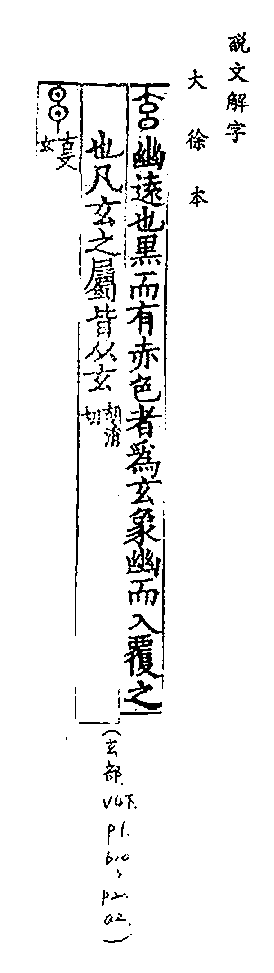 說文解字
大徐本
玄幽遠也黑而有赤色者為玄象幽而入覆之
也凡玄之屬皆从玄胡涓切
古文玄
(玄部.V4下.P1.b10,P2.a2.)